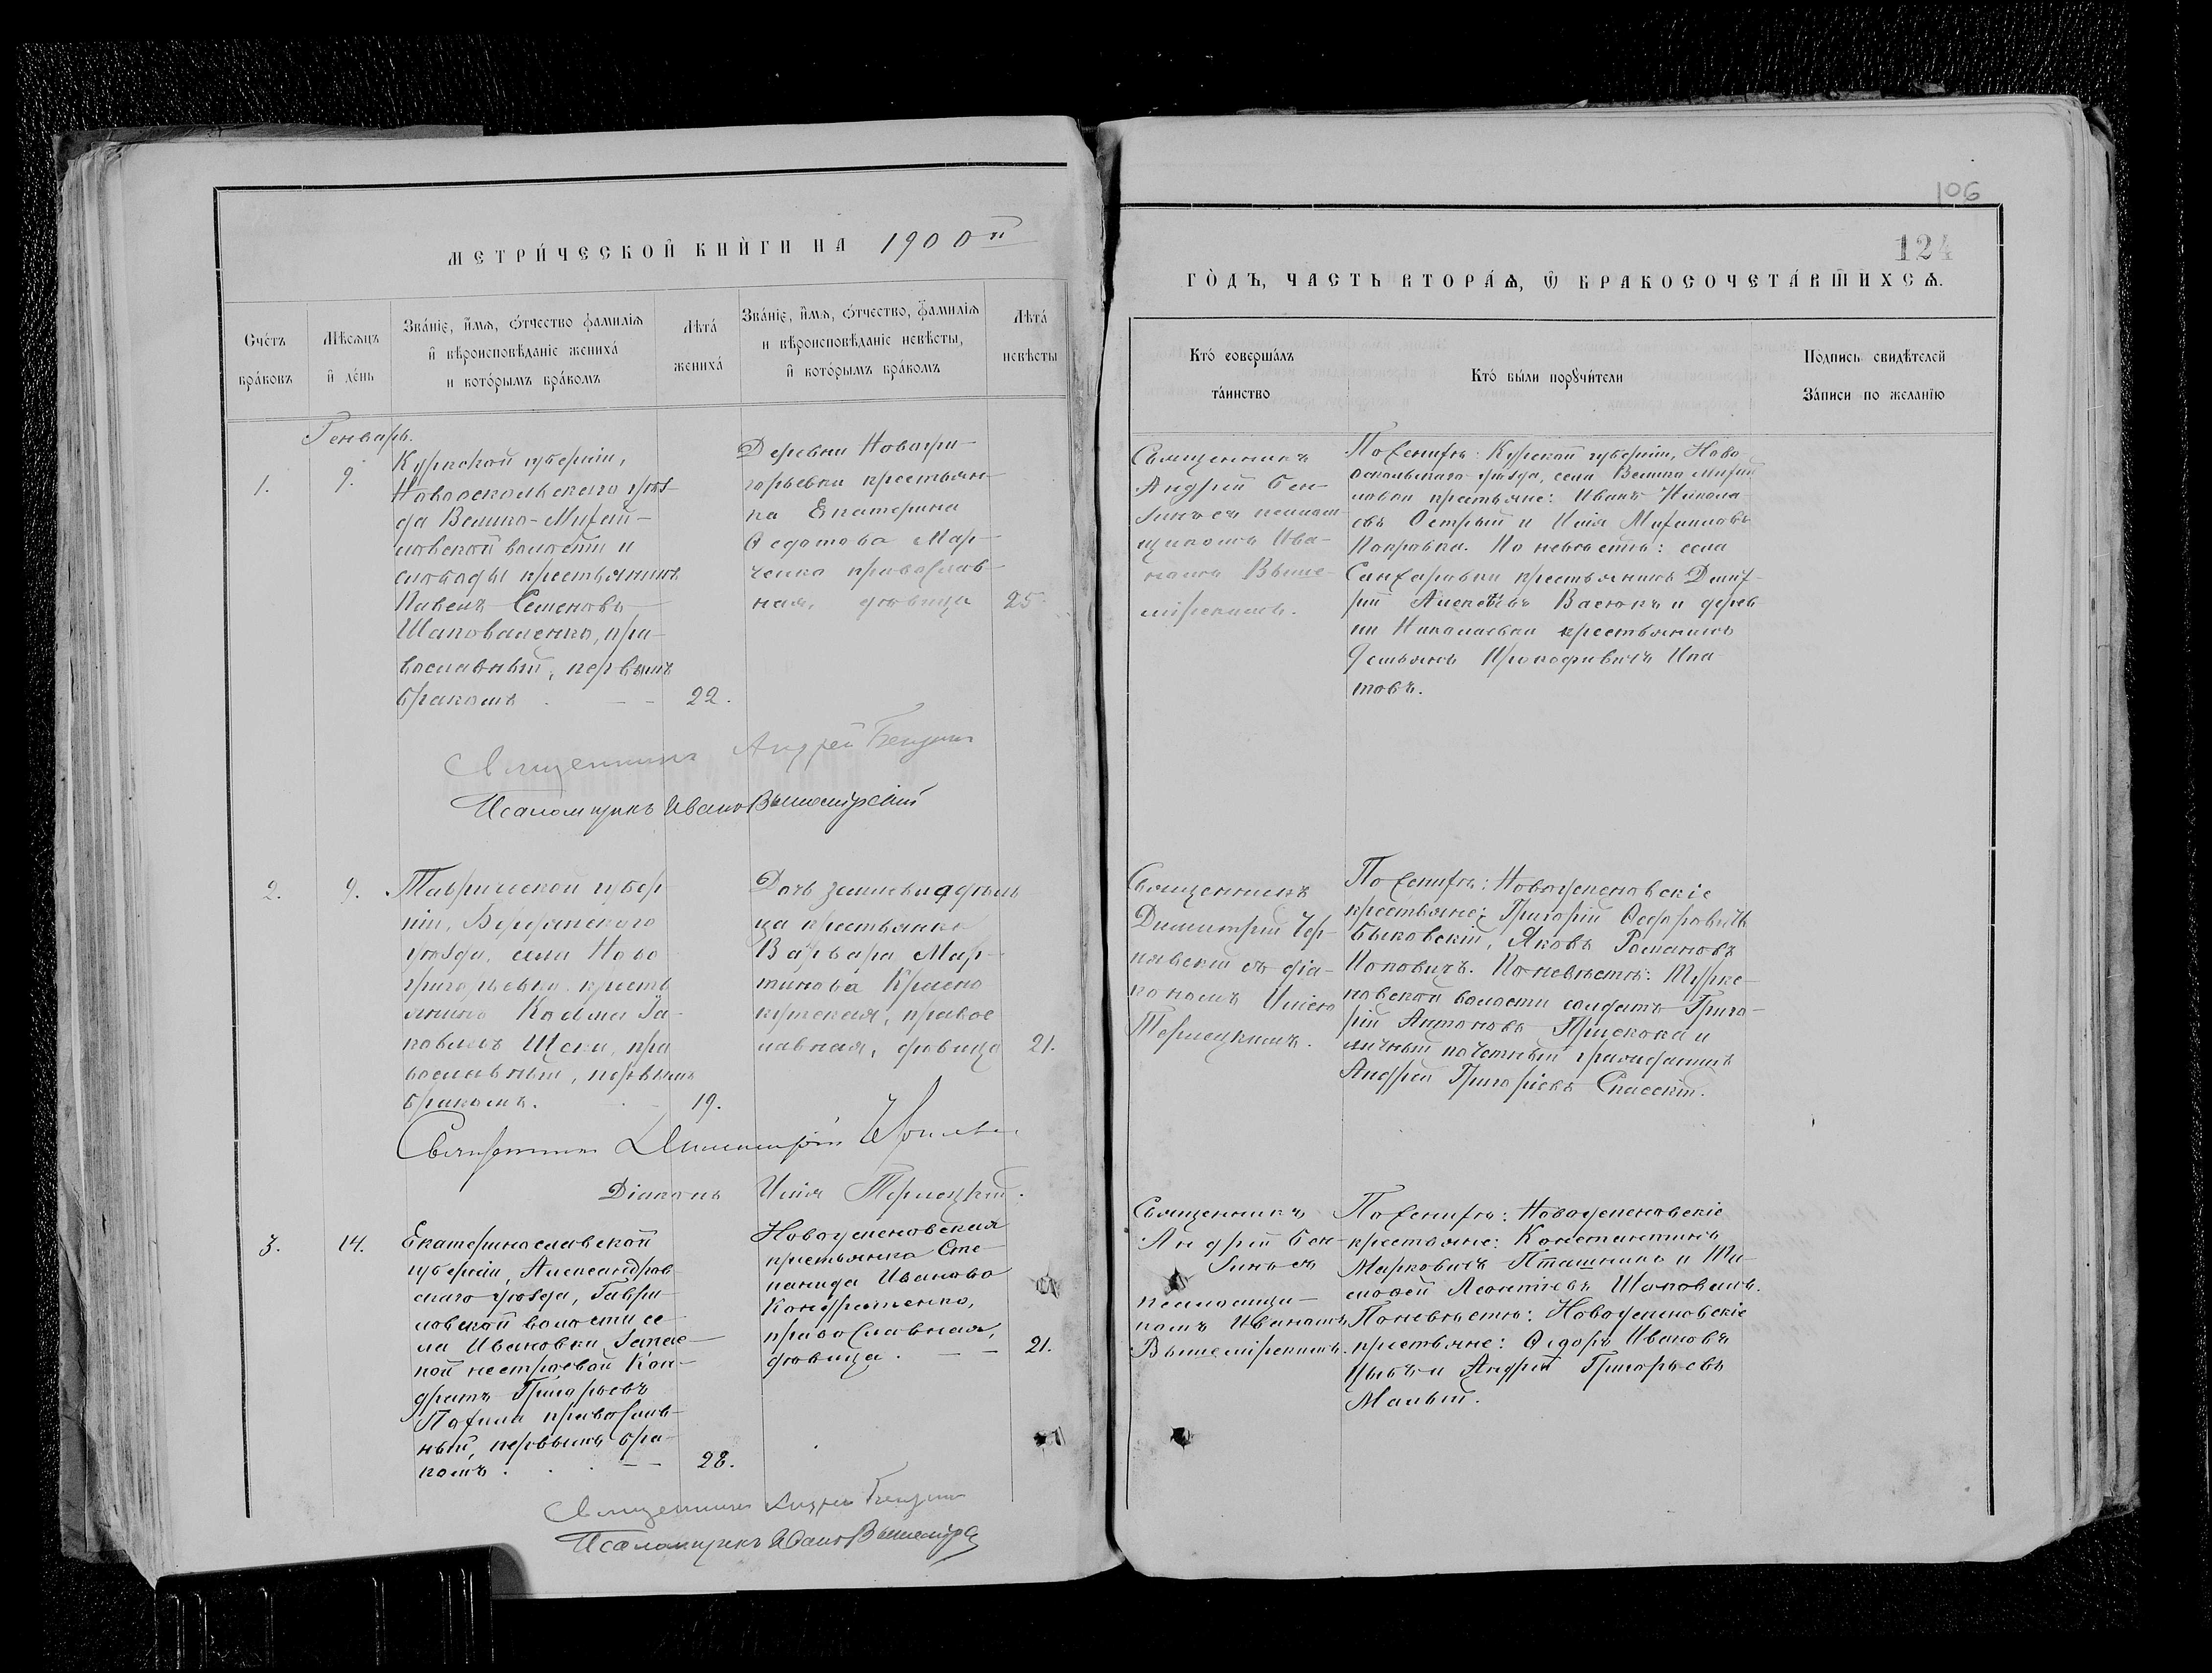 106
МЕТРИ́ЧЕСКОЙ КНИ́ГИ НА 1900й
124
ГО́ДЪ, ЧАСТЬ ВТОРА́Ѧ, Ѡ҆ БРАКОСОЧЕТА́ВШИХСѦ.
Сче́тъ
бра́ковъ
Мѣсѧцъ
и҆ де́нь
Зва́нїе, и҆́мѧ, ѻ҆́тчество фамилїѧ
и҆ вѣроисповѣданїе жениха́
и кото́рымъ бра́комъ
Лѣта́
жениха́
Зва́нїе, и҆́мѧ, ѻ҆́тчество, фамилїѧ
и вѣроисповѣданїе невѣсты,
и҆ кото́рымъ бра́комъ
Лѣта́
невѣсты
Кто́ соверша́лъ
та́инство
Кто́ бы́ли порꙋчи́тели
Подпись свидѣтелей
За́писи по желанїю
Генварь.
1.
9.
Курской губерніи,
Новооскольскаго уѣз-
да Велико-Михай-
ловской волости и
слободы крестьянинъ
Павелъ Семеновъ
Шаповаленко, пра-
вославный, первымъ
бракомъ
22.
Деревни Новогри-
горьевки крестьян-
ка Екатерина
Ѳедотова Мар-
ченко православ-
ная, дѣвица
25.
Священникъ
Андрей Бен-
зинъ съ псалом-
щикомъ Ива-
номъ Выше-
мірскимъ.
По женихѣ: Курской губерніи, Ново
оскольскаго уѣзда, села Велико Михай
ловки крестьяне: Иванъ Никола-
евъ Острый и Илія Михаиловъ
По невѣстѣ: села
крестьянинъ Дмит-
рій Алексѣевъ и дерев
ни Николаевки крестьянинъ
Демьянъ Прокофьевичъ Ипа-
товъ.
Священникъ Андрей Бензинъ
Псаломщикъ Иванъ Вышемірскій
2.
9.
Таврической губер
ніи, Бердянскаго
уѣзда, села Ново
григорьевки крестъ
янинъ Косма Іа-
ковлевъ пра
вославный, первымъ
бракомъ.
19.
Дочь землевладѣль
ца крестьянка
Варвара Мар-
тинова Красно
кутская, правос
лавная, дѣвица
21.
Священникъ
Димитрій Чер-
нявскій съ діа-
кономъ Иліею
Терлецкимъ.
По женихѣ: Новоуспеновскіе
крестьяне: Григорій Ѳедоровичъ
Быковскій, Яковъ Романовъ
Поповичъ. По невѣстѣ:
новской волости солдатъ Григо-
рій Антоновъ и
личный почетный гражданинъ
Андрей Григоріевъ Спасскій.
Священникъ Димитрій
Діаконъ Илія Терлецкій.
3.
14.
Екатеринославской
губерніи, Александров
скаго уѣзда, Гаври-
ловской волости се-
ла Ивановки Запас-
ной нестроевой Кон-
дратъ Григорьевъ
православ-
ный, первымъ бра-
комъ.
28.
Новоуспеновская
крестьянка Сте-
панида Иванова
Кондратенко,
православная,
дѣвица.
21.
Священникъ
Андрей Бен-
зинъ съ
псаломщи-
комъ Иваномъ
Вышемірскимъ.
По женихѣ: Новоуспеновскіе
крестьяне: Константинъ
Марковичъ Пташникъ и Ти-
моѳей Леонтіевъ Шаповалъ.
По невѣстѣ: Новоуспеновскіе
крестьяне: Ѳедоръ Ивановъ
и Андрей Григорьевъ
Малый.
Священникъ Андрей Бензинъ
Псаломщикъ Иванъ Вышемірскій